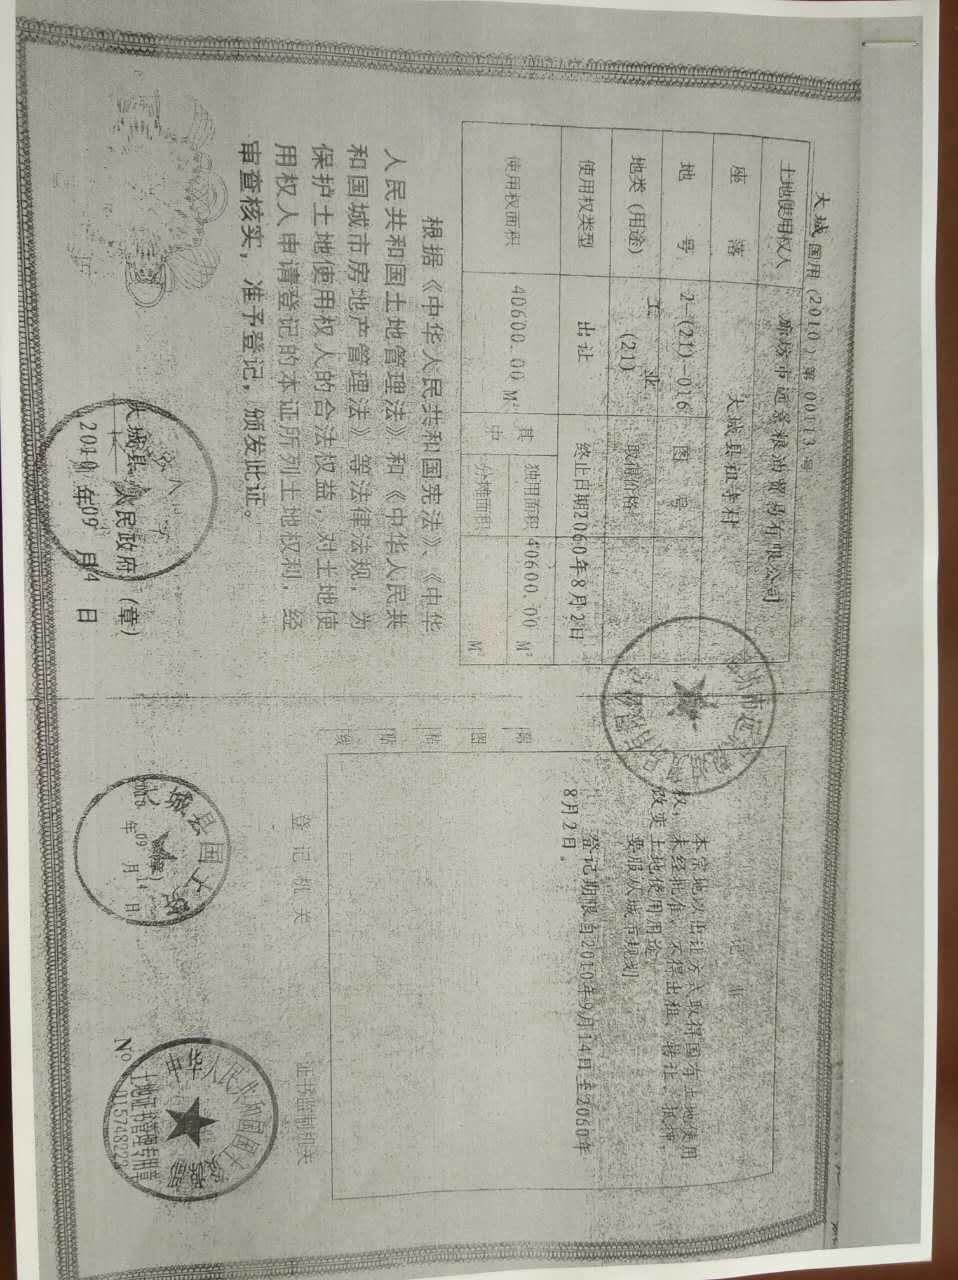 大城国用（2010）第 00113 号
土地使用权人 廊坊市远景粮油贸易有限公司
座 落 大城县祖寺村
地 号 2-(21)-016 图 号
地类（用途） 工 业 (21) 取得价格
使用权类型 出让 终止日期 2060年8月2日
使用权面积 40600.00 M² 其中 独用面积 40600.00 M²
分摊面积 M²
根据《中华人民共和国宪法》、《中华
人民共和国土地管理法》和《中华人民共
和国城市房地产管理法》等法律法规，为
保护土地使用权人的合法权益，对土地使
用权人申请登记的本证所列土地权利，经
审查核实，准予登记，颁发此证。
大城县人民政府（章）
2010 年 09 月 14 日
记 事
本宗地以出让方式取得国有土地使用
权，未经批准，不得出租、转让、抵押，
改变土地使用用途。
要服从城市规划。
登记期限自2010年9月14日至2060年
8月2日。
附 图 粘 贴 线
登 记 机 关
大城县国土
年 09 月 14 日
证书监制机关
中华人民共和国国土资源部
土地证书管理专用章
Nº 015748222